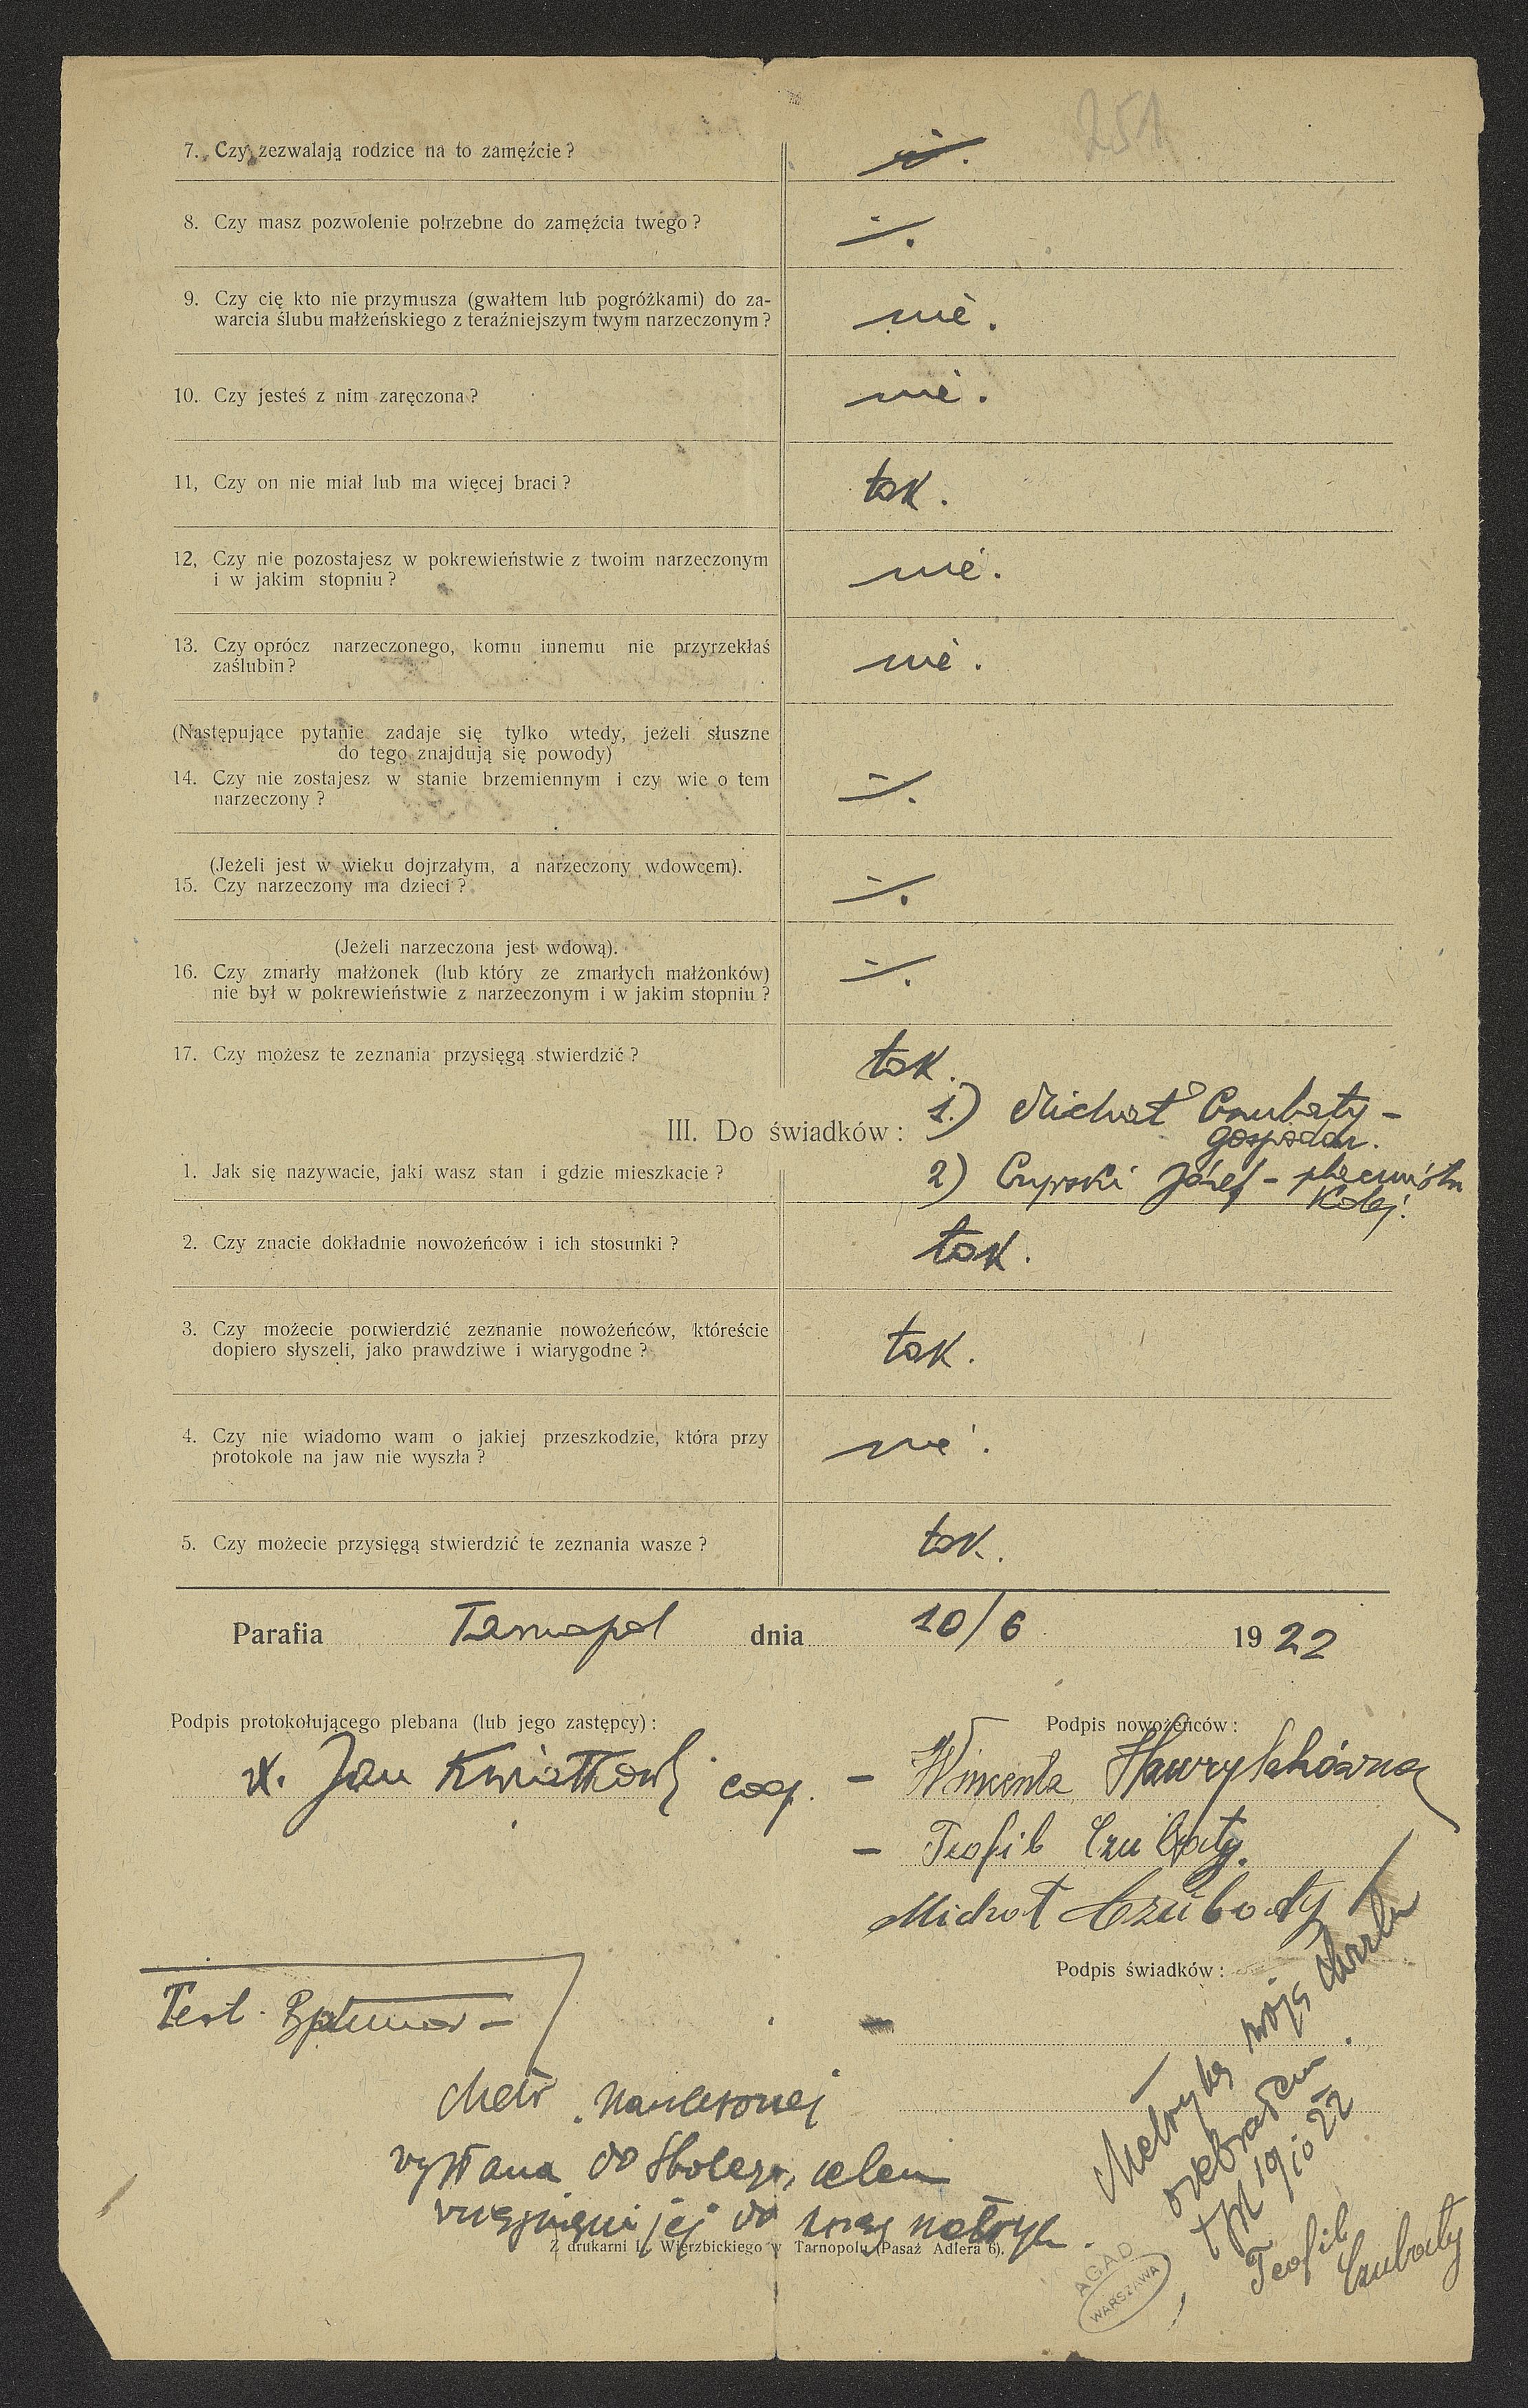 251
7. Czy zezwalają rodzice na to zamęźcie?
8. Czy masz pozwolenie potrzebne do zamęźcia twego? —.
9. Czy cię kto nie przymusza (gwałtem lub pogróżkami) do za-
warcia ślubu małżeńskiego z teraźniejszym twym narzeczonym? nie.
10. Czy jesteś z nim zaręczona? nie.
11, Czy on nie miał lub ma więcej braci? tak.
12, Czy nie pozostajesz w pokrewieństwie z twoim narzeczonym
i w jakim stopniu? nie.
13. Czy oprócz narzeczonego, komu innemu nie przyrzekłaś
zaślubin? nie.
(Następujące pytanie zadaje się tylko wtedy, jeżeli słuszne
do tego znajdują się powody)
14. Czy nie zostajesz w stanie brzemiennym i czy wie o tem
narzeczony? —.
(Jeżeli jest w wieku dojrzałym, a narzeczony wdowcem).
15. Czy narzeczony ma dzieci? —.
(Jeżeli narzeczona jest wdową).
16. Czy zmarły małżonek (lub który ze zmarłych małżonków)
nie był w pokrewieństwie z narzeczonym i w jakim stopniu? —.
17. Czy możesz te zeznania przysięgą stwierdzić? tak.
III. Do świadków:
1.) Michał Czubaty -
gospodar.
1. Jak się nazywacie, jaki wasz stan i gdzie mieszkacie?
2) Józef -
Kolej.
2. Czy znacie dokładnie nowożeńców i ich stosunki? tak.
3. Czy możecie potwierdzić zeznanie nowożeńców, któreście
dopiero słyszeli, jako prawdziwe i wiarygodne? tak.
4. Czy nie wiadomo wam o jakiej przeszkodzie, która przy
protokole na jaw nie wyszła? nie.
5. Czy możecie przysięgą stwierdzić te zeznania wasze? tak.
Parafia Tarnopol dnia 10/6 1922
Podpis protokołującego plebana (lub jego zastępcy):
X. Jan Kwiatkowski coop.
Podpis nowożeńców:
- Wincenta Hawrylukówna
- Teofil Czubaty.
Michał Czubaty
Podpis świadków:
Test.
Metr. narzeczonej
wysłana do Zbaraża, celem
wciągnięcia jej do metryk.
Metrykę moją chrztu
odebrałem.
Tpl 19/10 22
Teofil
Czubaty
Z drukarni L. Wierzbickiego w Tarnopolu (Pasaż Adlera 6).
AGAD
WARSZAWA